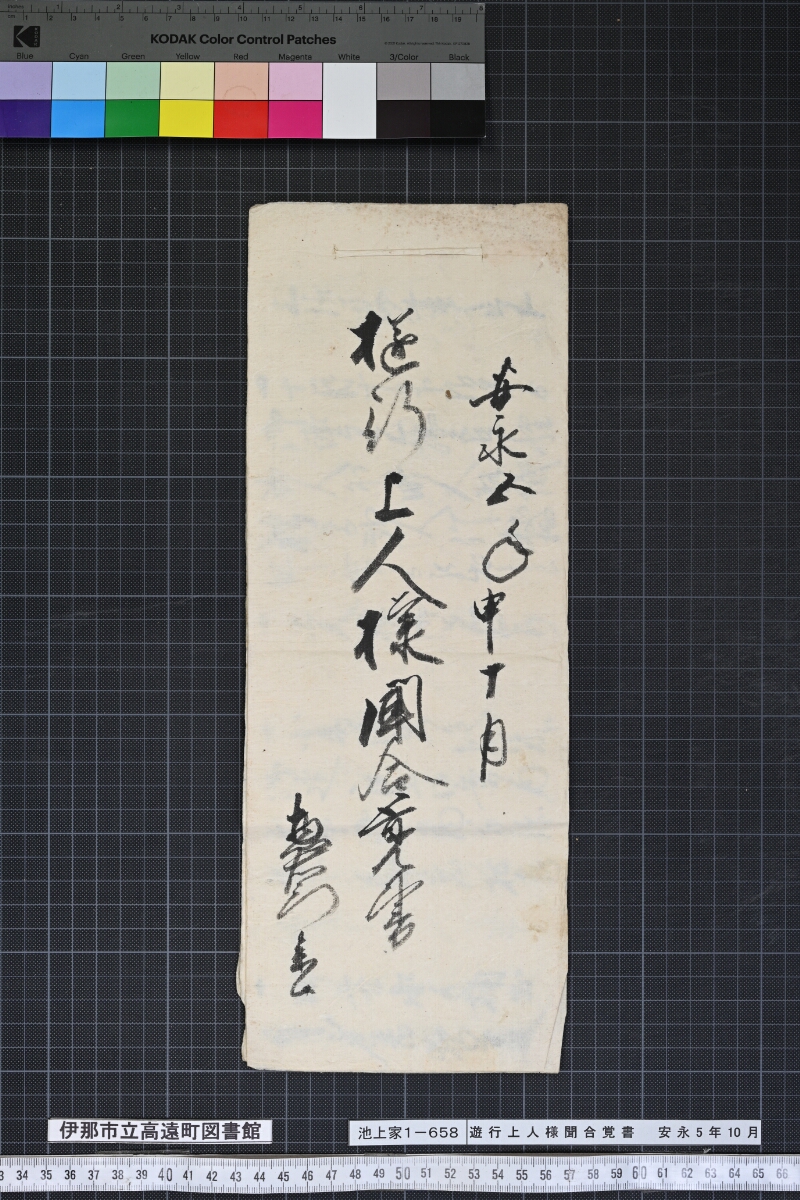 KODAK Color Control Patches
Blue Cyan Green Yellow Red Magenta White 3/Color Black
安永五年申十月
遊行上人様聞合覚書
伊那市立高遠町図書館
池上家1-658 遊行上人様聞合覚書 安永5年10月
33 34 35 36 37 38 39 40 41 42 43 44 45 46 47 48 49 50 51 52 53 54 55 56 57 58 59 60 61 62 63 64 65 66